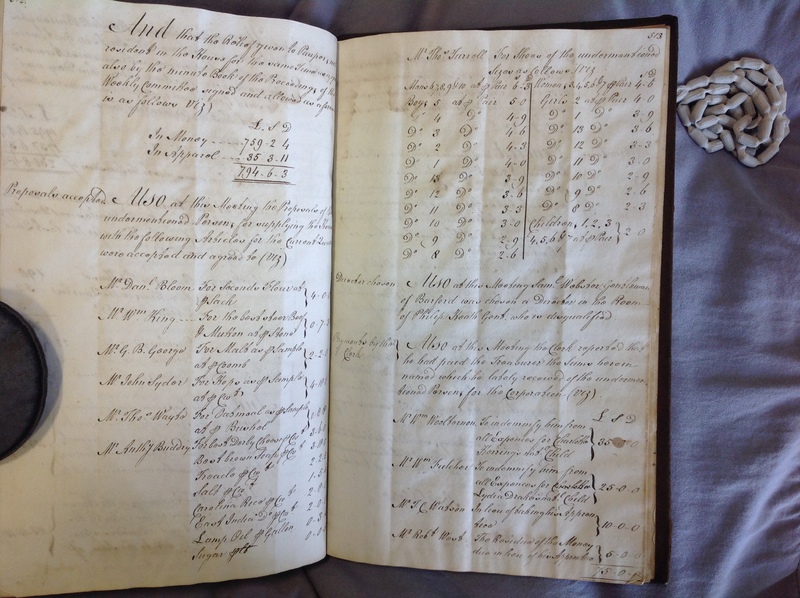 And that the Relief given to Paupers not
resident in the House for the same Time
also by the minute Book of the Proceedings of the
Weekly Committee signed and allowed
is as follows (Viz)
£ S D
In Money 759-2-4
In Apparel 35-3-11
794-6-3
Proposals accepted
Also at this Meeting the Proposals of the
undermentioned Persons for supplying the House
with the following Articles for the Current Quarter
were accepted and agreed to (Viz)
Mr. Danl. Bloom For Seconds Flour at
⅌ Sack
Mr. Wm. King For the best Beef
& Mutton at ⅌ Stone
Mr. G. B. George For Malt as ⅌ Sample
at ⅌ Coomb
Mr. John Syder For Hops as ⅌ Sample
at ⅌ Cwt
Mr. Thos. For Oatmeal as ⅌ Sample
at ⅌ Bushel
Mr. Anthy. Buddry best Derby Cheese ⅌ Cwt
Best brown Soap ⅌ Cwt
Treacle ⅌ Cwt
Salt ⅌ Cwt
Carolina Rice ⅌ Cwt
East India Do. ⅌ Cwt
Lamp Oil ⅌ Gallon
Sugar ⅌ lb
513
Mr. Thos. Turrell For Shoes of the undermentioned
Sizes as follows (Viz)
Mens 6, 7, 8, 9 & 10 at ⅌ Pair 6-3 Women 3, 4, 5, 6 & 7 ⅌ Pair 4-6
Boys 5 at ⅌ Pair 5-0 Girls 2 at ⅌ Pair 4-0
Do 4 Do 4-9 Do 1 Do 3-9
Do 3 Do 4-6 Do 13 Do 3-6
Do 2 Do 4-3 Do 12 Do 3-3
Do 1 Do 4-0 Do 11 Do 3-0
Do 13 Do 3-9 Do 10 Do 2-9
Do 12 Do 3-6 Do 9 Do 2-6
Do 11 Do 3-3 Do 8 Do 2-3
Do 10 Do 3-0 Children 1, 2, 3
Do 9 Do 2-9 4, 5, 6 & 7 at ⅌ Pair 2-0
Do 8 Do 2-6
Director chosen
Also at this Meeting Saml. Webster Gentleman
of Barford was chosen a Director in the Room
of Philip Heath Gent. who is disqualified
Payments by the
Clerk
Also at this Meeting the Clerk reported that
he had paid the Treasurer the Sums herein
named which he lately received of the undermen-
tioned Persons for the Corporation (Viz)
£ S D
Mr. Wm. To indemnify him from
all Expences for Charlotte 35
Child
Mr. Wm. Fulcher To indemnify him from
all Expences for 25-0-0
Lydia Drake's Child
Mr. T. C. Watson In lieu of taking his Appren
tice 10-0-0
Mr. Robt. West The Residue of the Money
due in lieu of his Apprentice 5-0-0